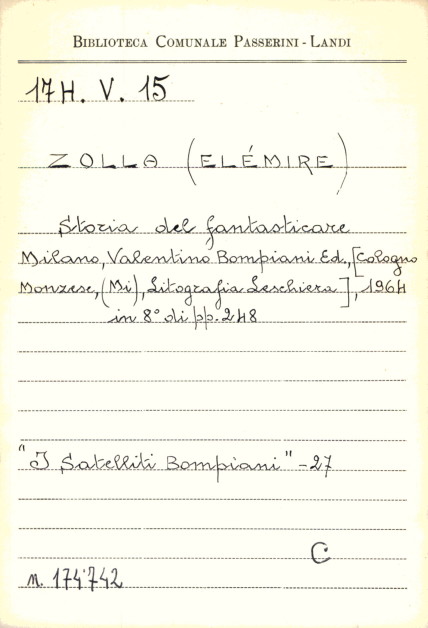 BIBLIOTECA COMUNALE PASSERINI - LANDI
17 H. V. 15
ZOLLA (ELÉMIRE)
Storia del fantasticare
Milano, Valentino Bompiani Ed., [Cologno
Monzese, (Mi), Litografia Leschiera], 1964
in 8° di pp. 248
"I Satelliti Bompiani" - 27
C
n. 174'742